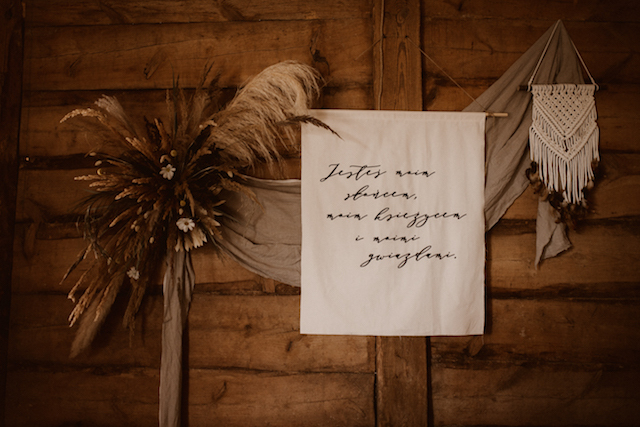 Jesteś moim
słońcem,
moim księżycem
i moimi
gwiazdami.